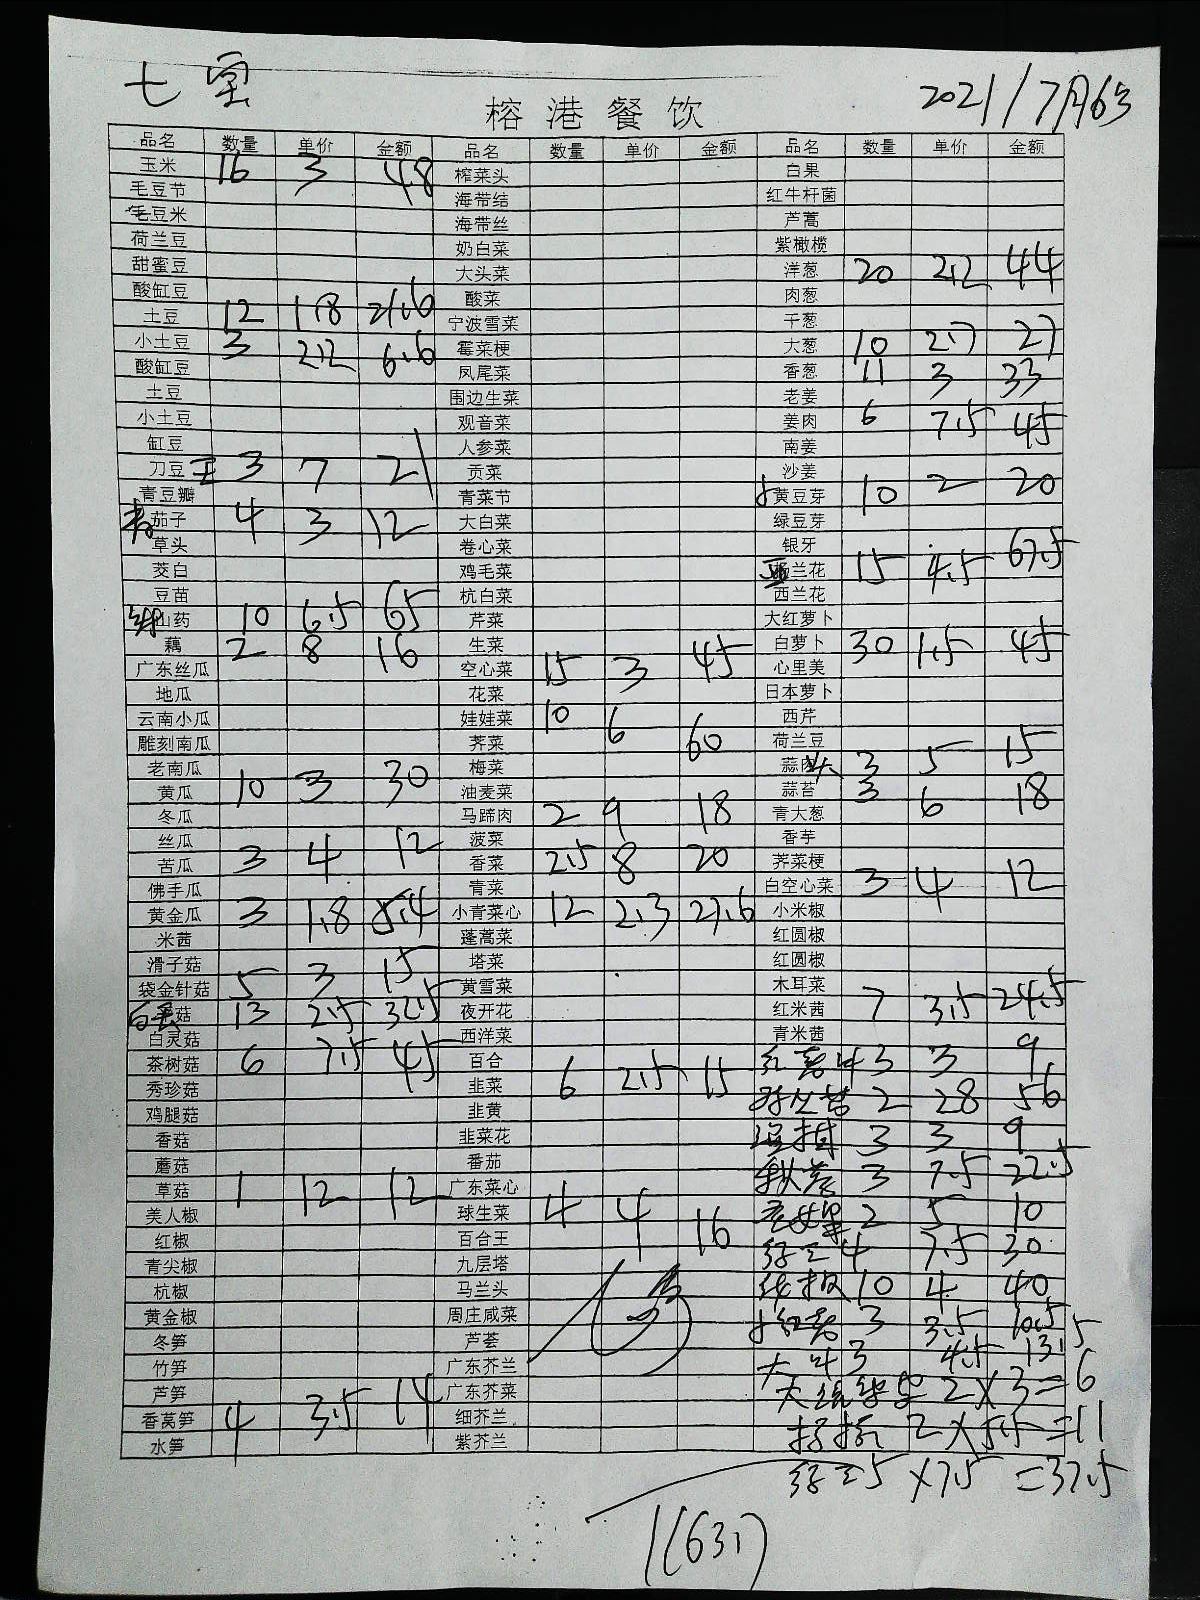 七宝
2021/7月6号
榕港餐饮
品名 数量 单价 金额
玉米 16 3 48
毛豆节
毛豆米
荷兰豆
甜蜜豆
酸缸豆
土豆 12 1.8 21.6
小土豆 3 2.2 6.6
酸缸豆
土豆
小土豆
缸豆
刀豆 3 7 21
青豆瓣
茄子 4 3 12
草头
茭白
豆苗
山药 10 6.5 65
藕 2 8 16
广东丝瓜
地瓜
云南小瓜
雕刻南瓜
老南瓜
黄瓜 10 3 30
冬瓜
丝瓜
苦瓜 3 4 12
佛手瓜
黄金瓜 3 1.8 5.4
米茜
滑子菇
袋金针菇 5 3 15
菇 13 2.5 32.5
白灵菇
茶树菇 6 7.5 45
秀珍菇
鸡腿菇
香菇
蘑菇
草菇 1 12 12
美人椒
红椒
青尖椒
杭椒
黄金椒
冬笋
竹笋
芦笋
香莴笋 4 3.5 14
水笋
品名 数量 单价 金额
榨菜头
海带结
海带丝
奶白菜
大头菜
酸菜
宁波雪菜
霉菜梗
凤尾菜
围边生菜
观音菜
人参菜
贡菜
青菜节
大白菜
卷心菜
鸡毛菜
杭白菜
芹菜
生菜
空心菜 15 3 45
花菜
娃娃菜 10 6 60
荠菜
梅菜
油麦菜
马蹄肉 2 9 18
菠菜
香菜 2.5 8 20
青菜
小青菜心 12 2.3 27.6
蓬蒿菜
塔菜
黄雪菜
夜开花
西洋菜
百合
韭菜 6 2.5 15
韭黄
韭菜花
番茄
广东菜心
球生菜 4 4 16
百合王
九层塔
马兰头
周庄咸菜
芦荟
广东芥兰
广东芥菜
细芥兰
紫芥兰
品名 数量 单价 金额
白果
红牛杆菌
芦蒿
紫橄榄
洋葱 20 2.2 44
肉葱
干葱
大葱 10 2.7 27
香葱 11 3 33
老姜
姜肉 6 7.5 45
南姜
沙姜
黄豆芽 10 2 20
绿豆芽
银牙
兰花 15 4.5 67.5
西兰花
大红萝卜
白萝卜 30 1.5 45
心里美
日本萝卜
西芹
荷兰豆
蒜头 3 5 15
蒜苔 3 6 18
青大葱
香芋
荠菜梗
白空心菜 3 4 12
小米椒
红圆椒
红圆椒
木耳菜
红米茜 7 3.5 24.5
青米茜
3 3 9
2 28 56
3 3 9
秋葵 3 7.5 22.5
2 5 10
4 7.5 30
线椒 10 4 40
3 3.5 10.5
大叶 3 4.5 13.5
2×3=6
2×5.5=11
5×7.5=37.5
1(631)